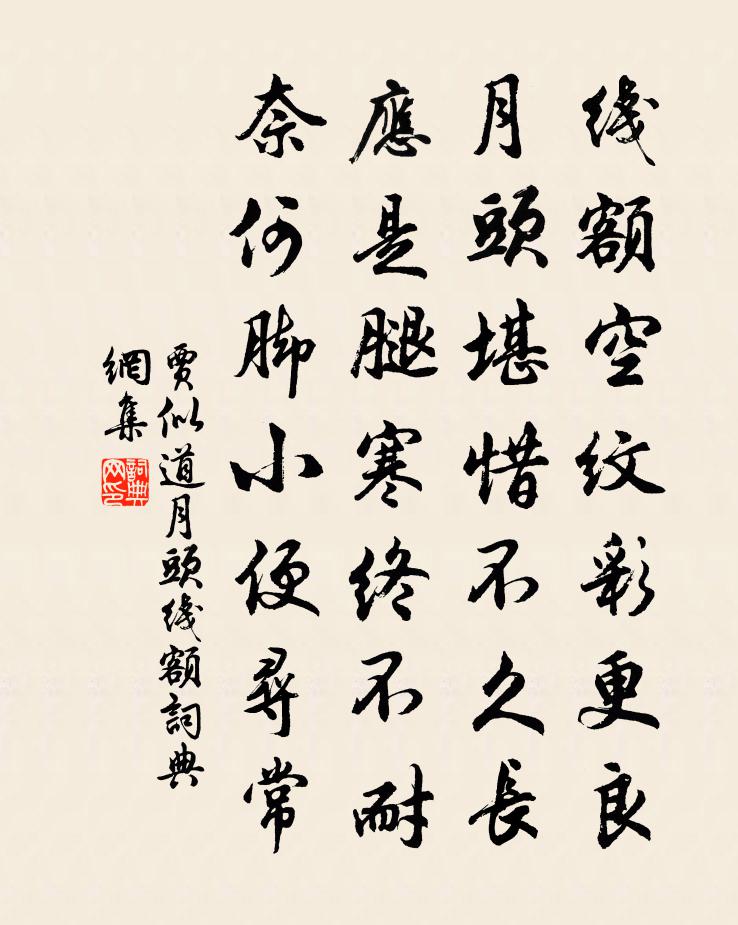 綫額空紋彩更良
月頭堪惜不久長
應是腿寒終不耐
奈何脚小便尋常
賈似道月頭綫額詞典
網集
詞典网印